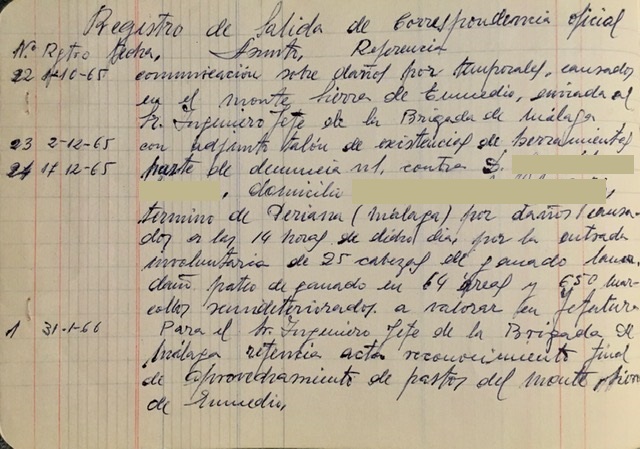 Registro de Salida de Correspondencia oficial
Nº Rgtro fecha, Asunto, Referencia
22 1-10-65 comunicación sobre daños por temporales, causados
en el monte Sierra de Enmedio, enviada al
Sr. Ingeniero Jefe de la Brigada de Málaga
23 2-12-65 con adjunto talón de existencias de herramientas
24 17-12-65 parte de denuncia nº1, contra D.
, domicilia
termino de Periana (Málaga) por daños causa-
dos a las 14 horas de dicho dia, por la entrada
involuntaria de 25 cabezas de ganado lanar,
daño pateo de ganado en 64 áreas y 650 mar-
collos semideteriorados. a valorar en Jefatura
1 31-1-66 Para el Sr. Ingeniero Jefe de la Brigada de
Málaga acta reconocimiento final
de aprovechamiento de pastos del monte Sierra
de Enmedio,